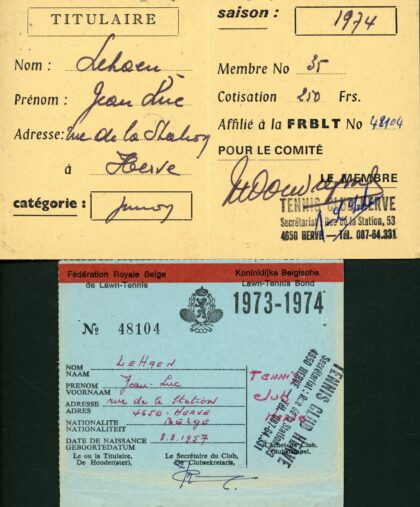 TITULAIRE
Nom : Lehaen
Prénom : Jean Luc
Adresse: rue de la Station
à Herve
catégorie : junior
saison : 1974
Membre No 35
Cotisation 250 Frs.
Affilié à la FRBLT No 48104
POUR LE COMITÉ
LE MEMBRE
TENNIS CLUB HERVE
Secrétariat : Rue de la Station, 53
4650 HERVE — Tél. 087-64.331
Fédération Royale Belge
de Lawn-Tennis
Koninklijke Belgische
Lawn-Tennis Bond
1973-1974
No 48104
NOM
NAAM LEHAEN
PRENOM
VOORNAAM Jean-Luc
ADRESSE
ADRES rue de la Station
4650-HERVE
NATIONALITE
NATIONALITEIT BELGE
DATE DE NAISSANCE
GEBOORTEDATUM 8.8.1957
TENNIS
CLUB
HERVE
TENNIS CLUB HERVE
Secrétariat : R. de la Station
4650 HERVE
Tél. 087-64.331
Le ou la Titulaire,
De Houder(ster),
Le Secrétaire du Club,
De Clubsekretaris,
Cachet du Club,